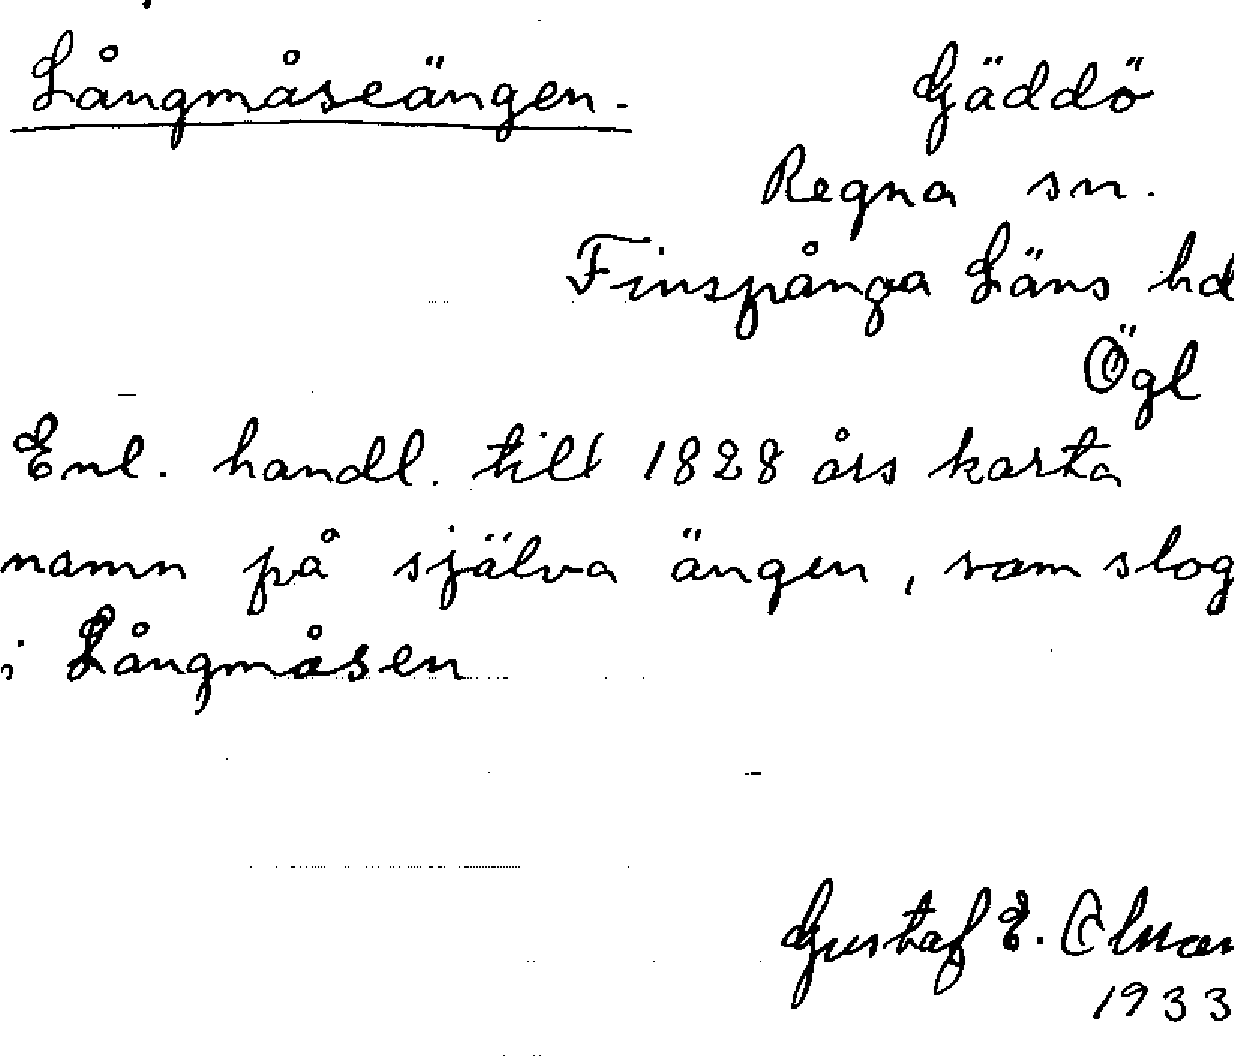 Långmåseängen.
Gäddö
Regna sn.
Finspånga Läns hd
Ögl
Enl. handl. till 1828 års karta
namn på själva ängen, som slog
i Långmåsen
Gustaf E.
1933